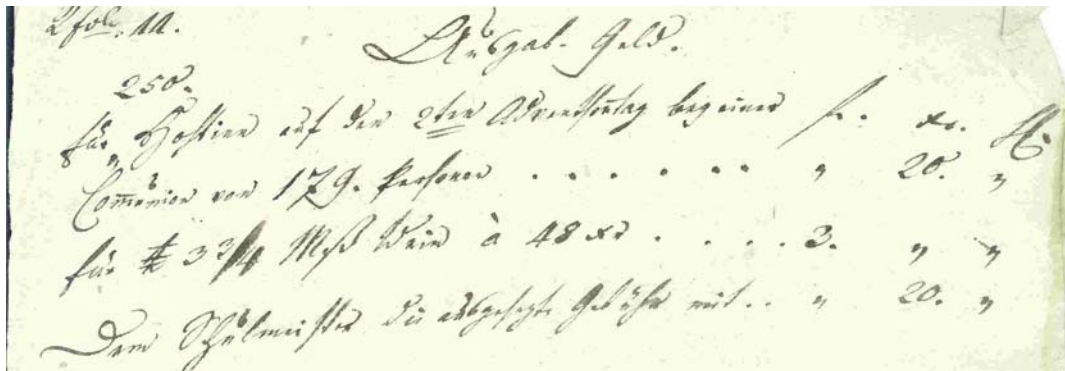 2 fol. 11.
Ausgab. Geld.
250.
für Hostien auf den 2ten Adventsontag bey einer f. xr. hl.
Com̄union von 179. Personen . . . . . . . " 20. "
für 3 3/4 Mß Wein à 48 xr . . . . 3. " "
Dem Schulmeister die ausgesezte Gebühr mit . . " 20. "